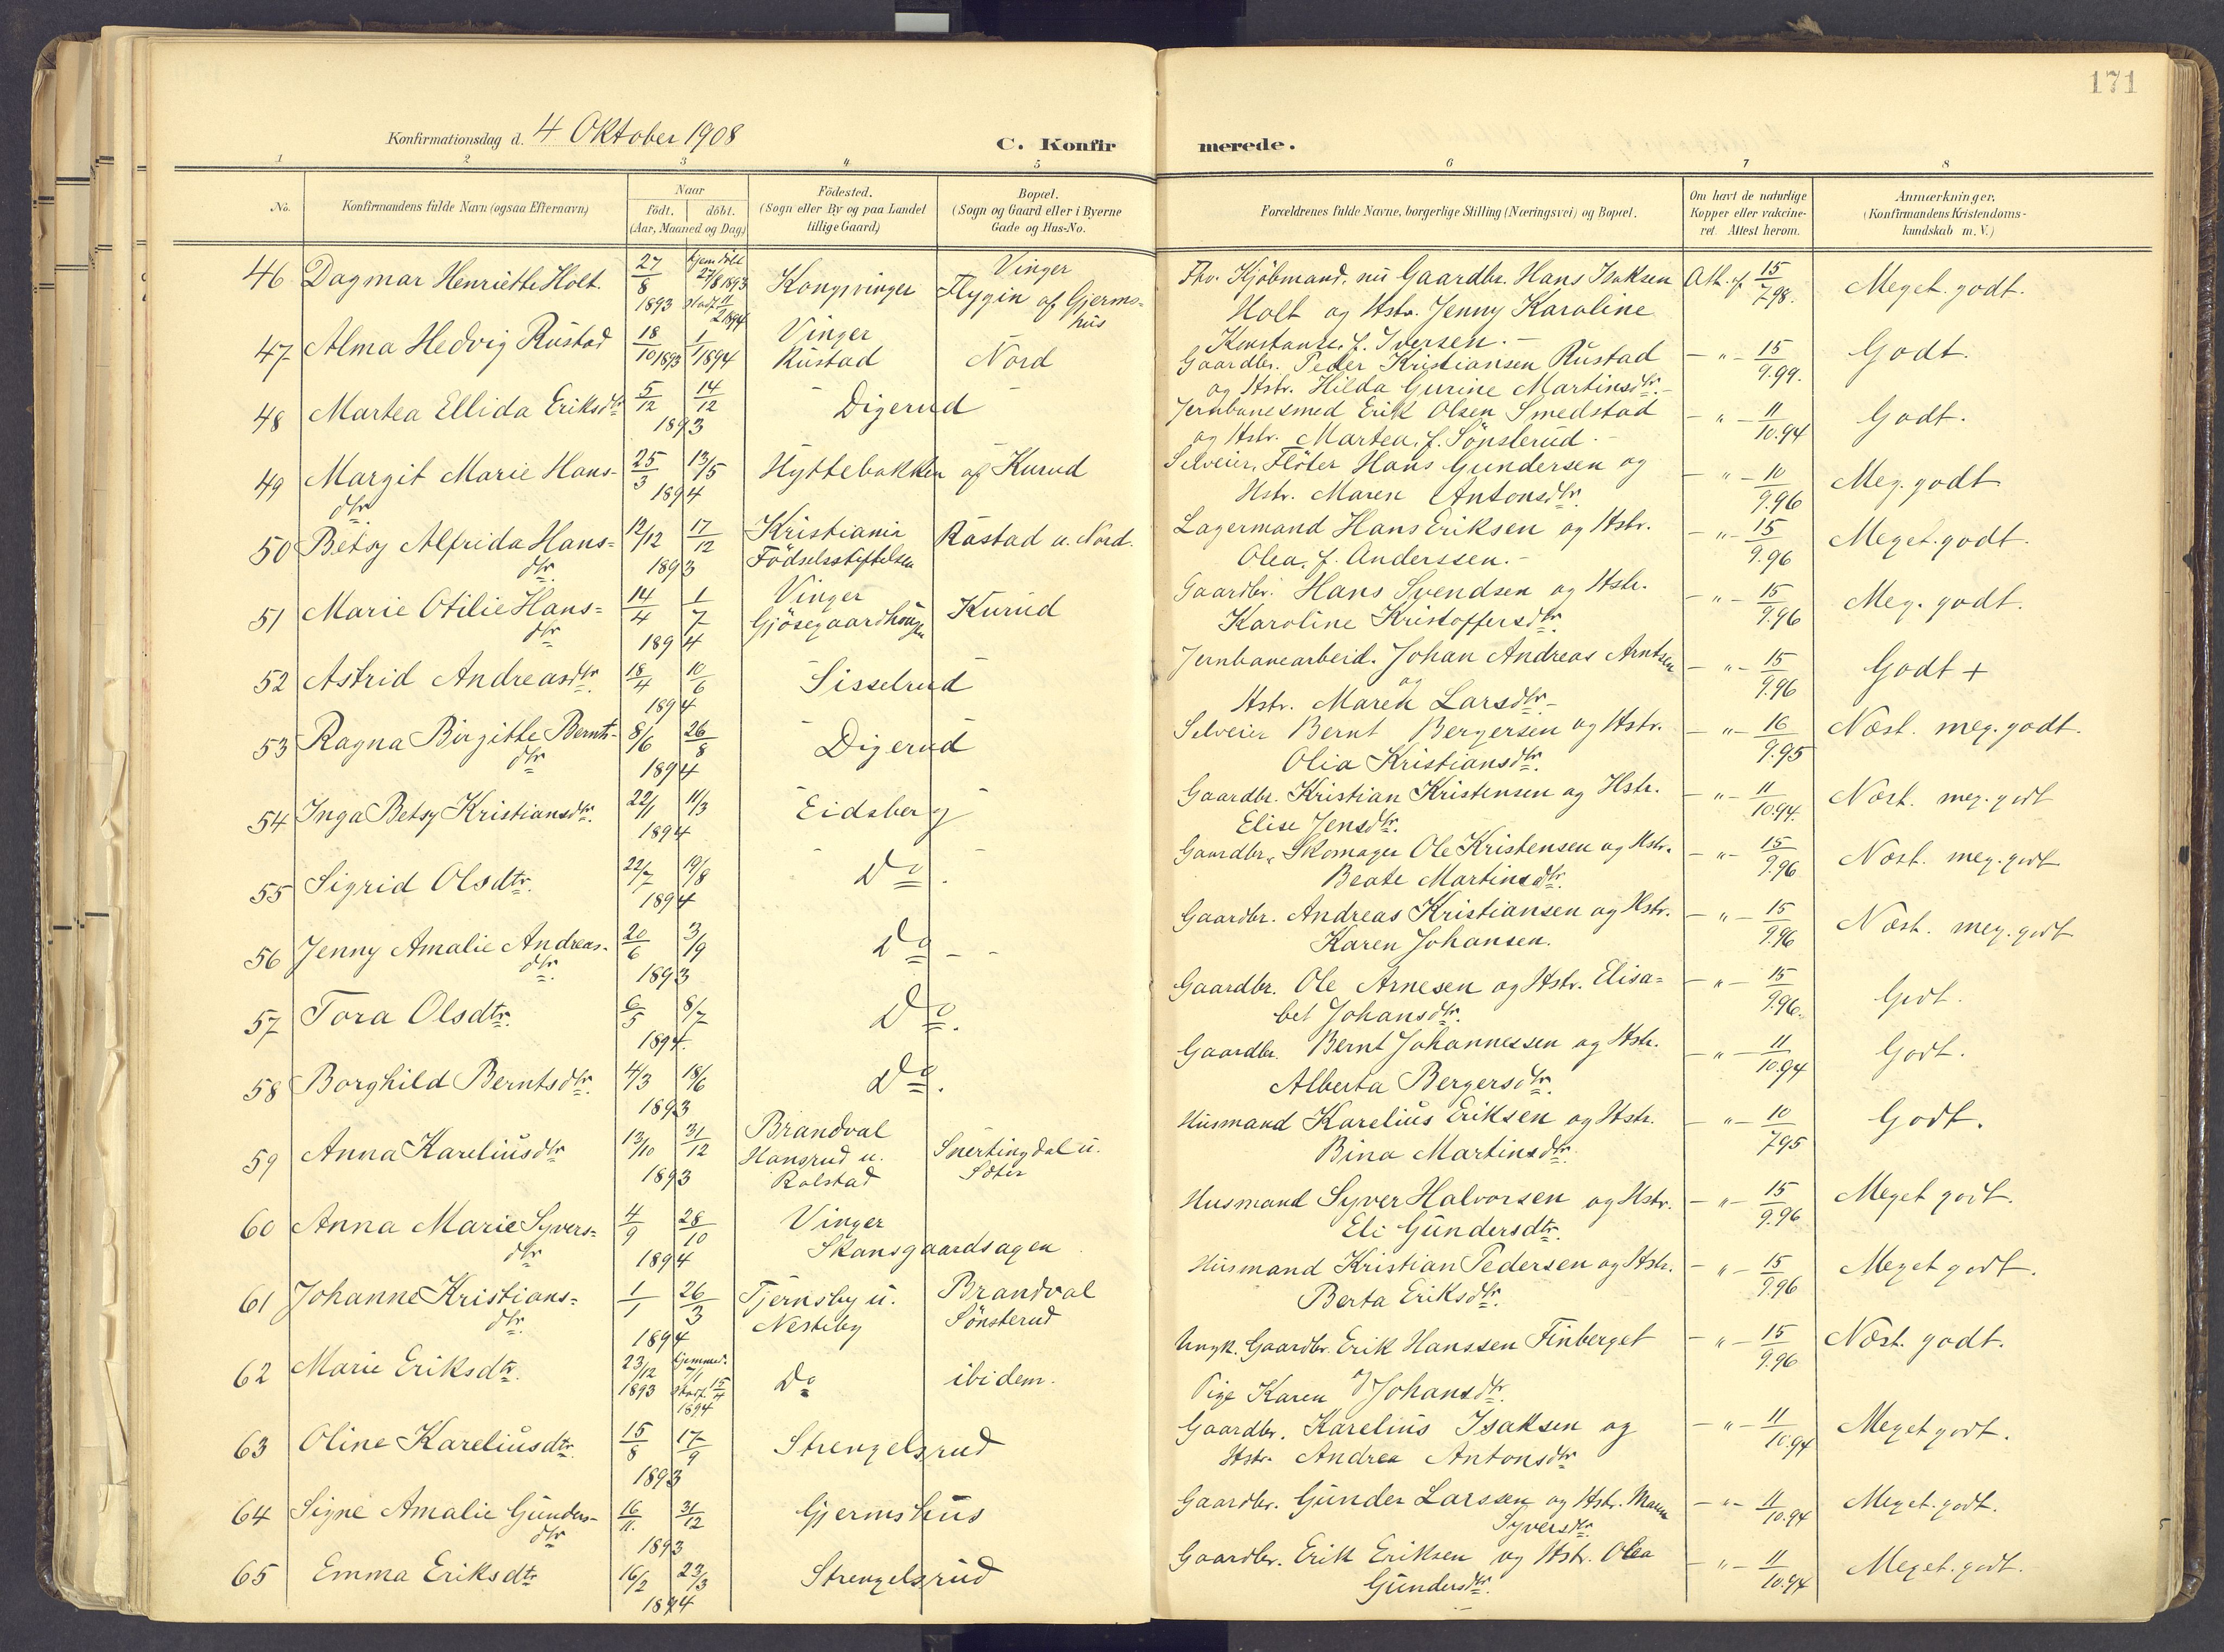 171
Konfirmationsdag d. 4 Oktober 1908
C. Konfir merede.
1 2 3 4 5 6 7 8
No.
Konfirmandens fulde Navn (ogsaa Efternavn)
Naar
födt. döbt.
(Aar, Maaned og Dag)
Födested.
(Sogn eller By og paa Landet
tillige Gaard)
Bopæl.
(Sogn og Gaard eller i Byerne
Gade og Hus-No.
Forældrenes fulde Navne, borgerlige Stilling (Næringsvei) og Bopæl.
Om havt de naturlige
Kopper eller vakcine-
ret. Attest herom.
Anmærkninger.
(Konfirmandens Kristendoms-
kundskab m. V.)
46 Dagmar Henriette Holt. 27/8 1893 hjemdöbt 27/8 1893 stadf. 11/2 1894 Kongsvinger Vinger
Flygin af Gjerms-
hus
Fhv. Kjöbmand, nu Gaardbr. Hans Isaksen Att. af 15/7 98. Meget godt.
Holt og Hstr. Jenny Karoline
Konstanse, f. Iversen.-
47 Alma Hedvig Rustad 18/10 1893 1/1 1894 Vinger
Rustad Nord
Gaardbr. Peder Kristiansen Rustad - " - 15/9.99. Godt.
og Hstr. Hilda Gurine Martinsdtr.-
48 Martea Ellida Eriksdtr 5/12 14/12 1893 Digerud
Jernbanesmed Erik Olsen Smedstad - " - 11/10.94 Godt.
og Hstr. Martea, f. Sönsterud.-
49 Margit Marie Hans-
dtr. 25/3 13/5 1894 Hyttebakken af Kurud
Selveier, Flöter Hans Gundersen og - " - 10/9.96 Meg. godt
Hstr. Maren Antonsdtr.
50 Betsy Alfrida Hans=
dtr. 12/12 17/12 1893 Kristiania
Födselsstiftelsen Rastad u. Nord.
Lagermand Hans Eriksen og Hstr. - " - 15/9.96 Meget godt.
Olea, f. Anderssen.-
51 Marie Otilie Hans=
dtr 14/4 1/7 1894 Vinger
Gjösegaardhaugen Kurud
Gaardbr. Hans Svendsen og Hstr. - " - 15/9.96 Meg. godt.
Karoline Kristoffersdtr.
52 Astrid Andreasdtr. 18/4 10/6 1894 Sisselrud
Jernbanearbeid. Johan Andreas Arntsen - " - 15/9.96 Godt +
og
Hstr. Maren Larsdtr.-
53 Ragna Birgitte Bernts-
dtr 8/6 26/8 1894 Digerud
Selveier Bernt Bergersen og Hstr. - " - 16/9.95 Næst. meg. godt.
Olia Kristiansdtr.
54 Inga Betsy Kristiansdtr. 22/1 11/3 1894 Eidsberg
Gaardbr. Kristian Kristensen og Hstr. - " - 11/10.94. Næst. meg. godt
Elise Jensdtr.
55 Sigrid Olsdtr. 22/7 19/8 1894 Do.
Gaardbr., Skomager Ole Kristensen og Hstr. - " - 15/9.96 Næst. meg. godt
Beate Martinsdtr.
56 Jenny Amalie Andreas-
dtr. 20/6 3/9 1893 Do - -
Gaardbr. Andreas Kristiansen og Hstr. - " - 15/9.96 Næst. meg. godt
Karen Johansen.
57 Tora Olsdtr. 6/5 8/7 1894. Do.
Gaardbr. Ole Arnesen og Hstr. Elisa= - " - 15/9.96. Godt.
bet Johansdtr.
58 Borghild Berntsdtr. 4/3 18/6 1893 Do.
Gaardbr. Bernt Johannessen og Hstr. - " - 11/10.94 Godt.
Alberta Bergersdtr.
59 Anna Kareliusdtr 13/10 31/12 1893 Brandval
Hansrud u.
Rolstad Snertingdal u.
Sæter
Husmand Karelius Eriksen og Hstr. - " - 10/7 95 Godt.
Bina Martinsdtr.
60 Anna Marie Syvers=
dtr 4/9 28/10 1894 Vinger
Skansgaardsagen
Husmand Syver Halvorsen og Hstr. - " - 15/9.96 Meget godt.
Eli Gundersdtr.
61 Johanne Kristians=
dtr. 1/1 26/3 1894 Tjernsby u.
Nesteby Brandval
Sönsterud
Husmand Kristian Pedersen og Hstr. - " - 15/9.96 Meget godt.
Berta Eriksdtr.
62 Marie Eriksdtr. 23/12 1893 hjemmed. 7/1 stadf. 15/4 1894 Do ibidem.
Ungk. Gaardbr. Erik Hanssen Finberget - " - 15/9.96 Næst. godt.
og
Pige Karen Johansdtr.
63 Oline Kareliusdtr. 15/8 17/9 1893 Strengelsrud
Gaardbr. Karelius Isaksen og - " - 11/10.94 Meget godt.
Hstr. Andrea Antonsdtr
64 Signe Amalie Gunders-
dtr 16/11. 31/12 1893 Gjermshus
Gaardbr. Gunder Larssen og Hstr. Maren - " - 11/10.94 Meget godt.
Syversdtr.
65 Emma Eriksdtr 16/2 23/3 1894 Strengelsrud
Gaardbr. Erik Eriksen og Hstr. Olea - " - 11/10.94 Meget godt.
Gundersdtr.